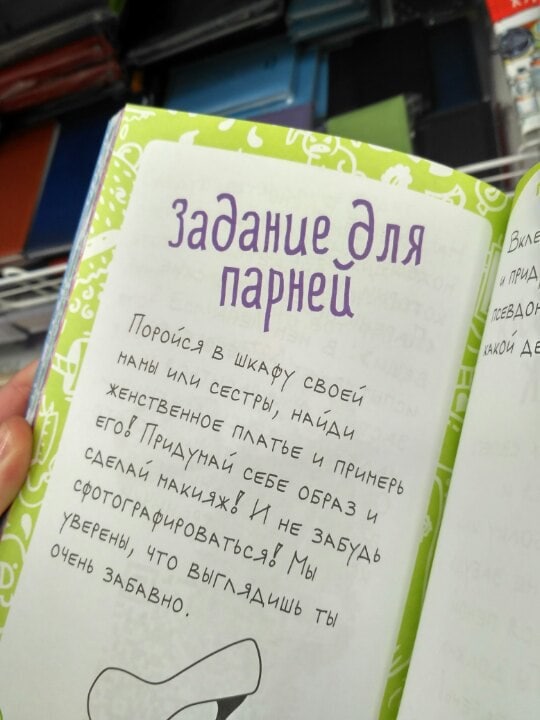 Задание для
парней
Поройся в шкафу своей
наны или сестры, найди
женственное платье и примерь
его! Придунай себе образ и
сделай макияж! И не забудь
сфотографироваться! Мы
уверены, что выглядишь ты
очень забавно.
Вкле
и прид
псевдон
какой де